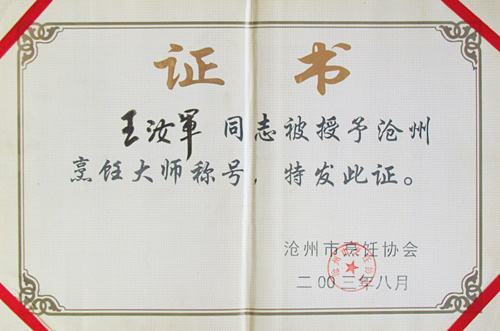 证 书
王汝军 同志被授予沧州
烹饪大师称号，特发此证。
沧州市烹饪协会
二00三年八月